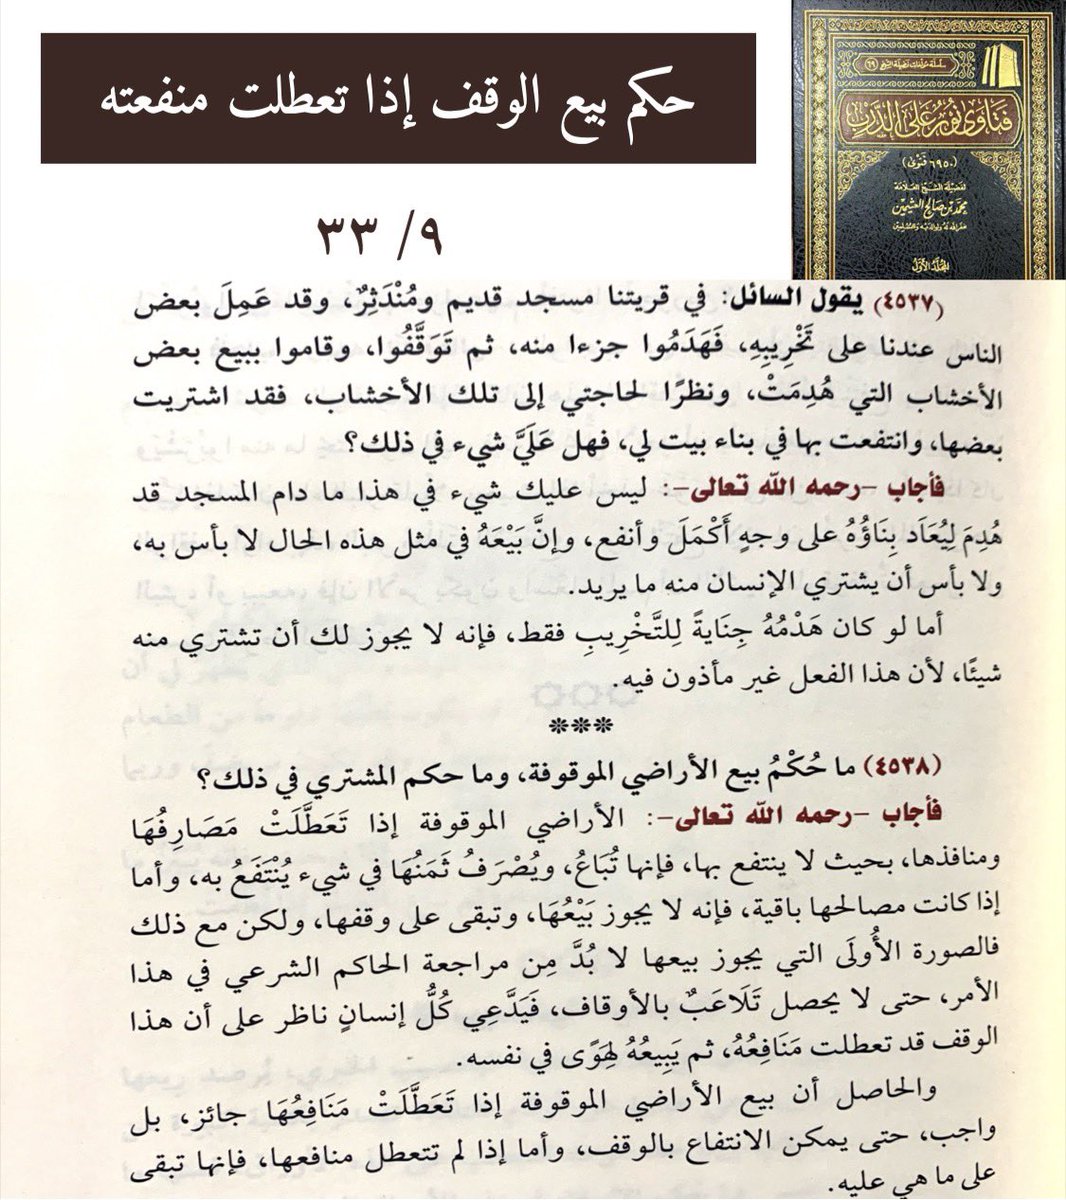 حكم بيع الوقف إذا تعطلت منفعته
٩/ ٣٣
سلسلة مؤلفات فضيلة الشيخ (٦٩)
فتاوى نور على الدرب
(٦٩٥٠ فتوى)
لفضيلة الشيخ العلامة
محمد بن صالح العثيمين
غفر الله له ولوالديه وللمسلمين
المجلد الأول
(٤٥٣٧) يقول السائل: في قريتنا مسجد قديم ومُنْدَثِرٌ، وقد عَمِلَ بعض
الناس عندنا على تَخْرِيبِهِ، فَهَدَمُوا جزءا منه، ثم تَوَقَّفُوا، وقاموا ببيع بعض
الأخشاب التي هُدِمَتْ، ونظرًا لحاجتي إلى تلك الأخشاب، فقد اشتريت
بعضها، وانتفعت بها في بناء بيت لي، فهل عَلَيَّ شيء في ذلك؟
فأجاب -رحمه الله تعالى-: ليس عليك شيء في هذا ما دام المسجد قد
هُدِمَ لِيُعَاَد بِنَاؤُهُ على وجهٍ أَكْمَلَ وأنفع، وإنَّ بَيْعَهُ في مثل هذه الحال لا بأس به،
ولا بأس أن يشتري الإنسان منه ما يريد.
أما لو كان هَدْمُهُ جِنَايةً لِلتَّخْرِيبِ فقط، فإنه لا يجوز لك أن تشتري منه
شيئًا، لأن هذا الفعل غير مأذون فيه.
***
(٤٥٣٨) ما حُكْمُ بيع الأراضي الموقوفة، وما حكم المشتري في ذلك؟
فأجاب -رحمه الله تعالى-: الأراضي الموقوفة إذا تَعَطَّلَتْ مَصَارِفُهَا
ومنافذها، بحيث لا ينتفع بها، فإنها تُبَاعُ، ويُصْرَفُ ثَمَنُهَا في شيء يُنْتَفَعُ به، وأما
إذا كانت مصالحها باقية، فإنه لا يجوز بَيْعُهَا، وتبقى على وقفها، ولكن مع ذلك
فالصورة الأُولَى التي يجوز بيعها لا بُدَّ مِن مراجعة الحاكم الشرعي في هذا
الأمر، حتى لا يحصل تَلَاعَبٌ بالأوقاف، فَيَدَّعِي كُلُّ إنسانٍ ناظر على أن هذا
الوقف قد تعطلت مَنَافِعُهُ، ثم يَبِيعُهُ لِهَوًى في نفسه.
والحاصل أن بيع الأراضي الموقوفة إذا تَعَطَّلَتْ مَنَافِعُهَا جائز، بل
واجب، حتى يمكن الانتفاع بالوقف، وأما إذا لم تتعطل منافعها، فإنها تبقى
على ما هي عليه.